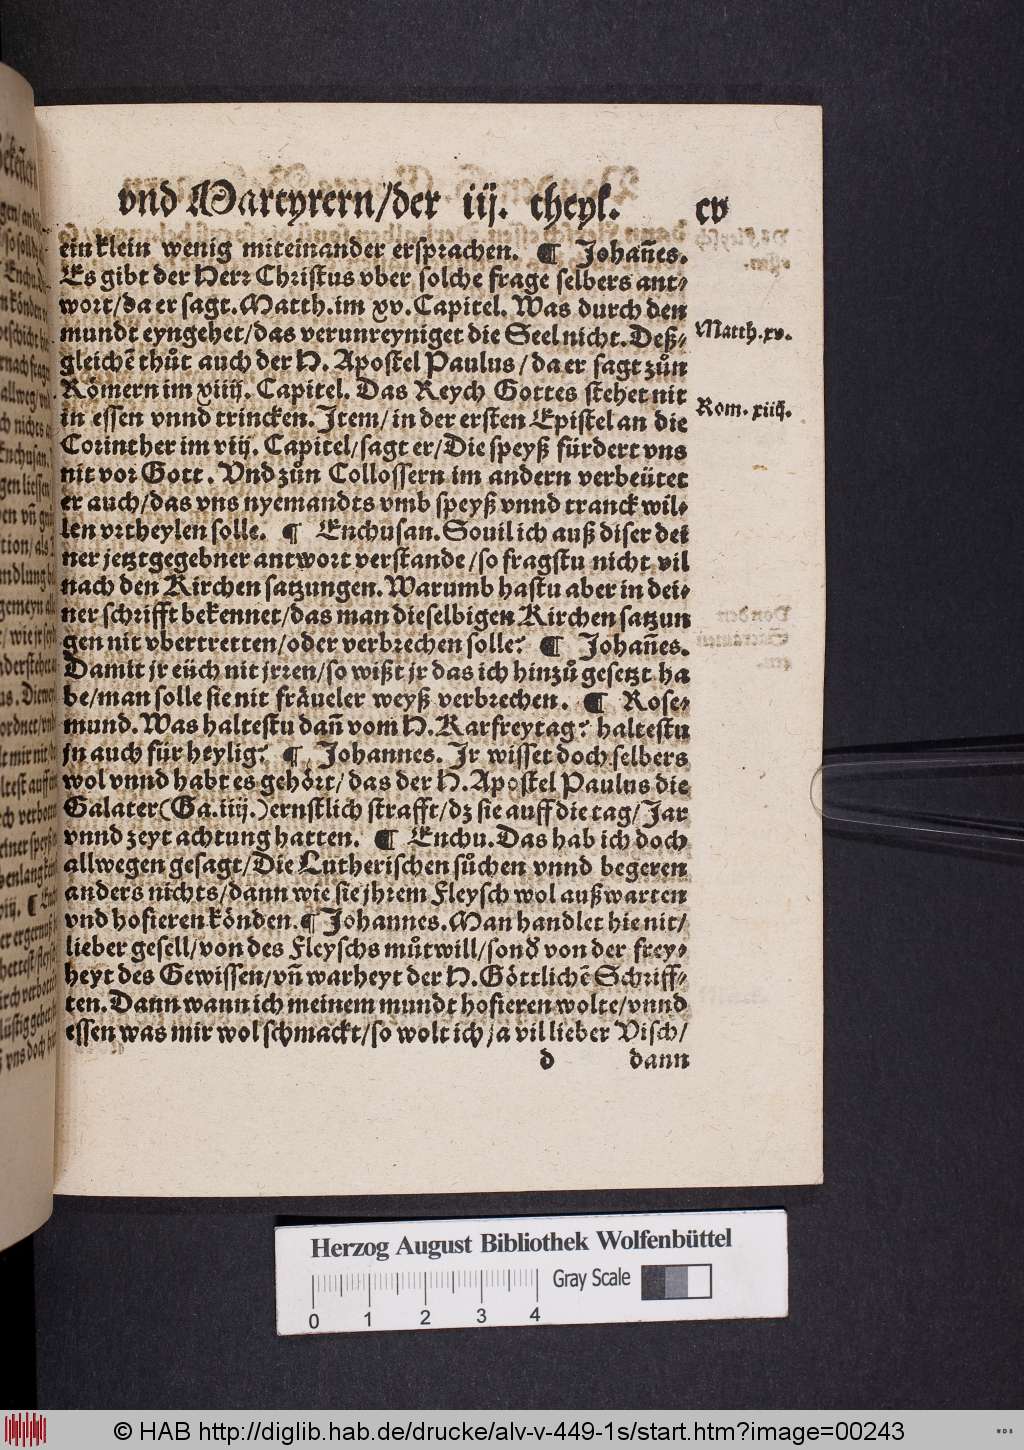 vnd Martyrern/der iij. theyl. cv
ein klein wenig miteinander ersprachen. ¶ Johañes.
Es gibt der Herr Christus vber solche frage selbers ant⸗
wort/da er sagt. Matth. im xv. Capitel. Was durch den
mundt eyngehet/das verunreyniget die Seel nicht. Deß⸗
Matth. xv.
gleichẽ thůt auch der H. Apostel Paulus/da er sagt zůn
Römern im xiiij. Capitel. Das Reych Gottes stehet nit
Rom. xiiij.
in essen vnnd trincken. Item/in der ersten Epistel an die
Corinther im viij. Capitel/sagt er/Die speyß fürdert vns
nit vor Gott. Vnd zůn Collossern im andern verbeütet
er auch/das vns nyemandts vmb speyß vnnd tranck wil⸗
len vrtheylen solle. ¶ Enchusan. Souil ich auß diser dei
ner jetztgegebner antwort verstande/so fragstu nicht vil
nach den Kirchen satzungen. Warumb hastu aber in dei⸗
ner schrifft bekennet/das man dieselbigen Kirchen satzun
gen nit vbertretten/oder verbrechen solle? ¶ Johañes.
Damit jr eüch nit jrren/so wißt jr das ich hinzů gesetzt ha
be/man solle sie nit fräueler weyß verbrechen. ¶ Rose⸗
mund. Was haltestu dañ vom H. Karfreytag? haltestu
jn auch für heylig? ¶ Johannes. Jr wisset doch selbers
wol vnnd habt es gehört/das der H. Apostel Paulus die
Galater (Ga. iiij.) ernstlich strafft/dz sie auff die tag/Jar
vnnd zeyt achtung hatten. ¶ Enchu. Das hab ich doch
allwegen gesagt/Die Lutherischen sůchen vnnd begeren
anders nichts/dann wie sie jhrem Fleysch wol außwarten
vnd hofieren könden. ¶ Johannes. Man handlet hie nit/
lieber gesell/von des Fleyschs můtwill/sonđ von der frey⸗
heyt des Gewissen/vñ warheyt der H. Göttlichẽ Schriff⸗
ten. Dann wann ich meinem mundt hofieren wolte/vnnd
essen was mir wol schmackt/so wolt ich ja vil lieber Visch/
d dann
Herzog August Bibliothek Wolfenbüttel
Gray Scale
0 1 2 3 4
© HAB http://diglib.hab.de/drucke/alv-v-449-1s/start.htm?image=00243